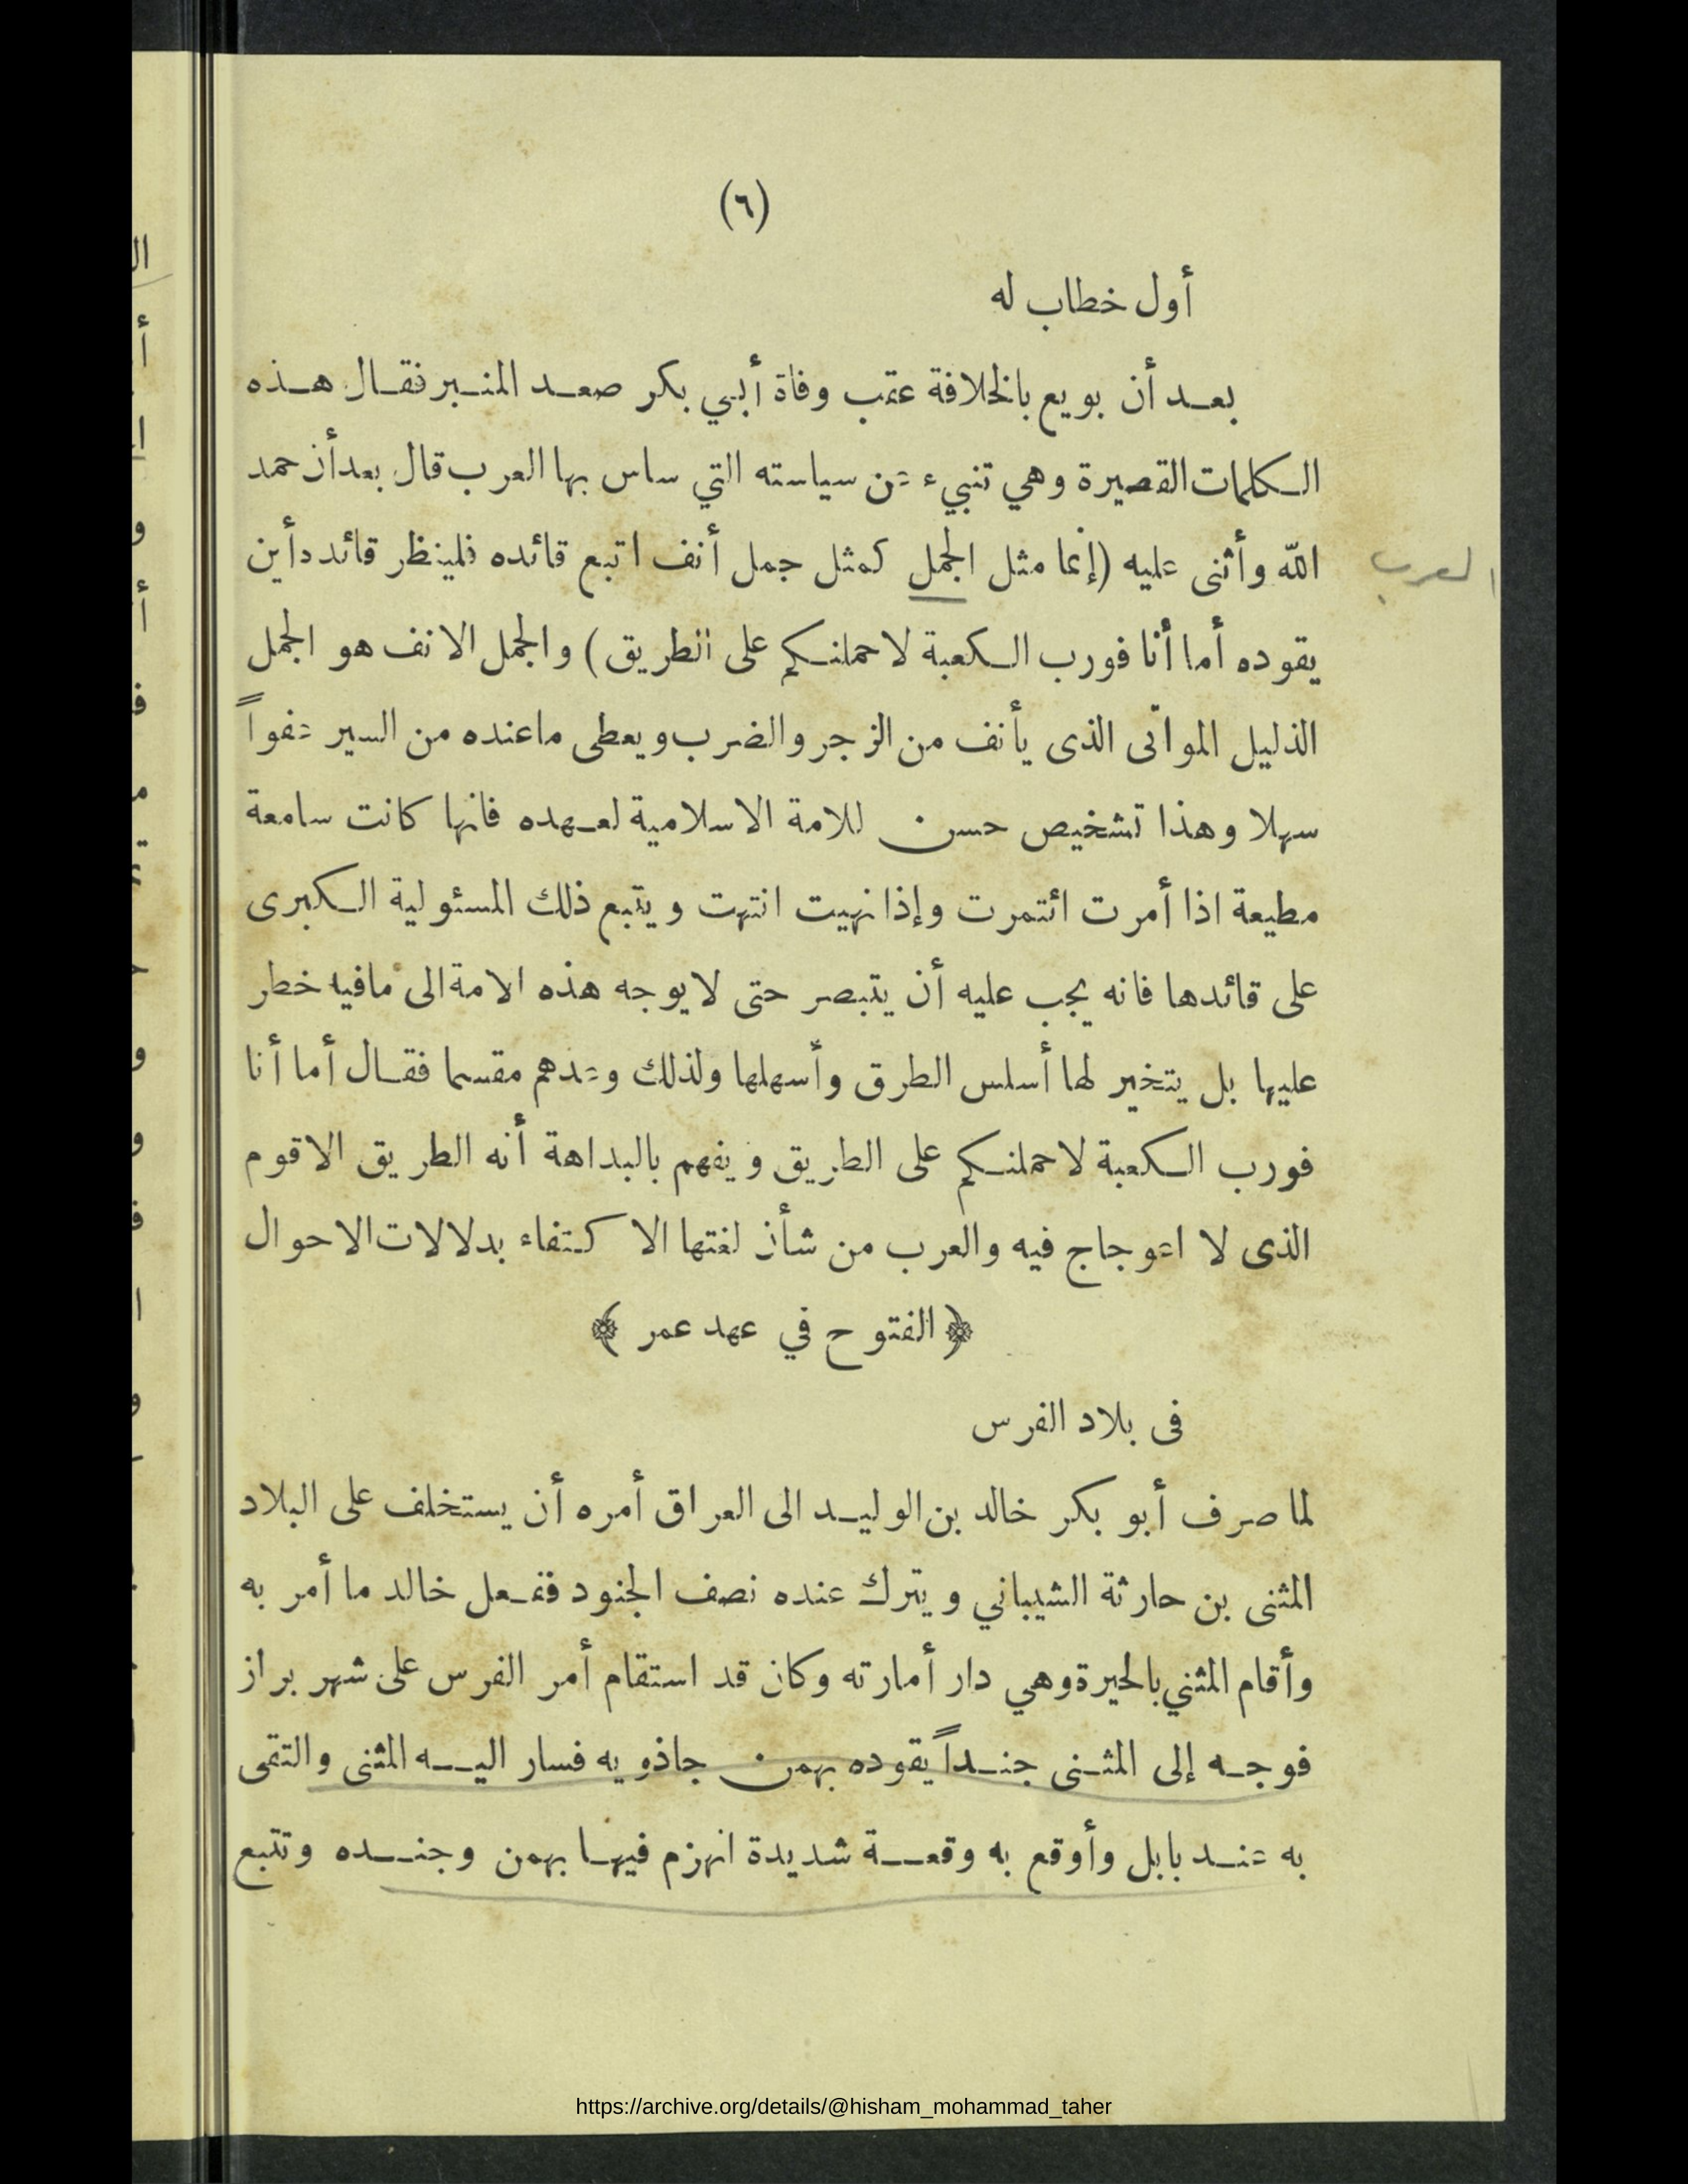 (٦)
أول خطاب له
بعد أن بويع بالخلافة عقب وفاة أبي بكر صعد المنبر فقال هذه
الكلمات القصيرة وهي تنبيء عن سياسته التي ساس بها العرب قال بعد أن حمد
الله وأثنى عليه (إنما مثل الجمل كمثل جمل أنف اتبع قائده فلينظر قائده أين
العرب
يقوده أما أنا فورب الكعبة لاحملنكم على الطريق) والجمل الانف هو الجمل
الذليل المواتى الذى يأنف من الزجر والضرب ويعطى ماعنده من السير عفواً
سهلا وهذا تشخيص حسن للامة الاسلامية لعهده فانها كانت سامعة
مطيعة اذا أمرت ائتمرت وإذا نهيت انتهت ويتبع ذلك المسئولية الكبرى
على قائدها فانه يجب عليه أن يتبصر حتى لايوجه هذه الامة الى مافيه خطر
عليها بل يتخير لها أسلس الطرق وأسهلها ولذلك وعدهم مقسما فقال أما أنا
فورب الكعبة لاحملنكم على الطريق ويفهم بالبداهة أنه الطريق الاقوم
الذى لا اعوجاج فيه والعرب من شأن لغتها الاكتفاء بدلالات الاحوال
﴿ الفتوح في عهد عمر ﴾
فى بلاد الفرس
لما صرف أبو بكر خالد بن الوليد الى العراق أمره أن يستخلف على البلاد
المثنى بن حارثة الشيباني ويترك عنده نصف الجنود ففعل خالد ما أمر به
وأقام المثني بالحيرة وهي دار أمارته وكان قد استقام أمر الفرس على شهر براز
فوجه إلى المثنى جنداً يقوده بهمن جاذويه فسار اليه المثنى والتقى
به عند بابل وأوقع به وقعة شديدة انهزم فيها بهمن وجنده وتتبع
https://archive.org/details/@hisham_mohammad_taher